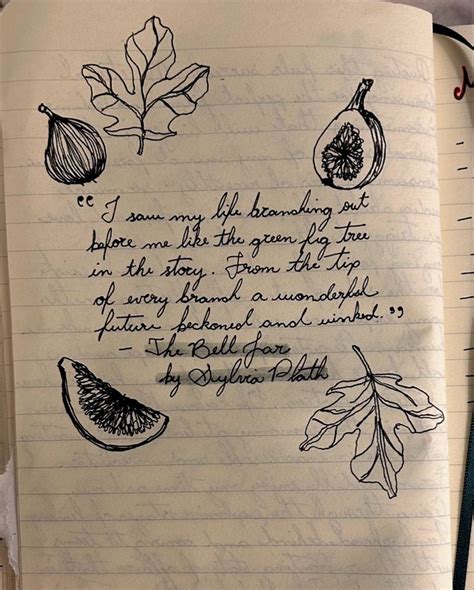 “ I saw my life branching out
before me like the green fig tree
in the story. From the tip
of every branch a wonderful
future beckoned and winked. ”
- The Bell Jar
by Sylvia Plath